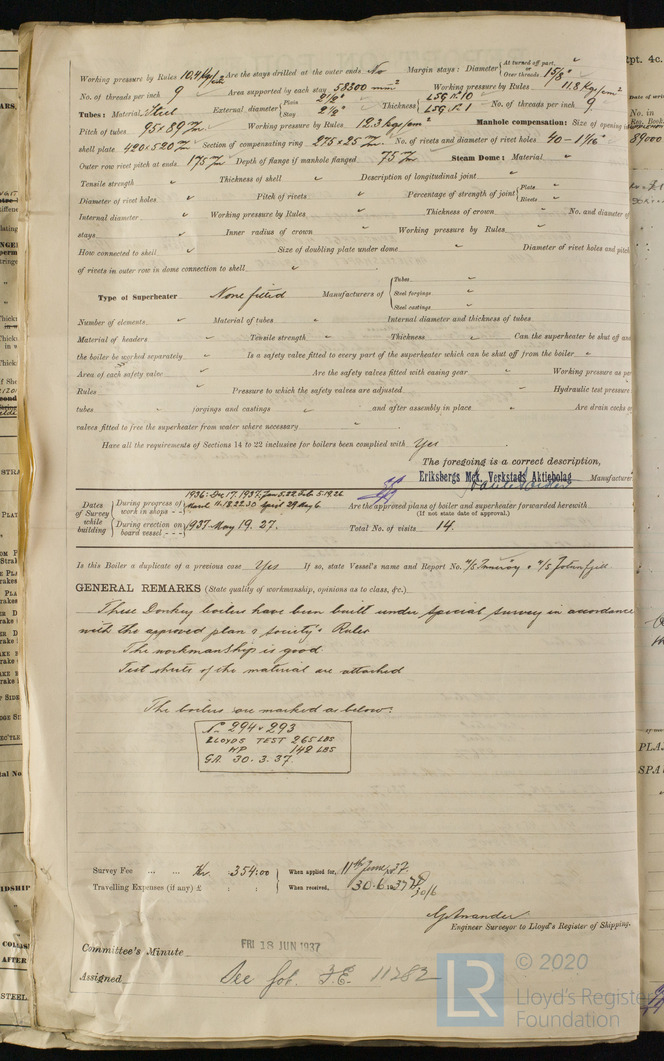 Working pressure by Rules 10.4 Kg/cm² Are the stays drilled at the outer ends No Margin stays: Diameter { At turned off part, or Over threads 15/8"
No. of threads per inch 9 Area supported by each stay 58300 mm² Working pressure by Rules 11.8 Kgs/cm²
Tubes: Material Steel External diameter { Plain 2½" Stay 2½" Thickness { LSG No 10 LSG No 1 No. of threads per inch 9
Pitch of tubes 95 x 89 Working pressure by Rules 12.3 Kgs/cm² Manhole compensation: Size of opening in
shell plate 420 x 520 Section of compensating ring 275 x 25 No. of rivets and diameter of rivet holes 40 - 1 1/16"
Outer row rivet pitch at ends 175 Depth of flange if manhole flanged 75 Steam Dome: Material
Tensile strength Thickness of shell Description of longitudinal joint
Diameter of rivet holes Pitch of rivets Percentage of strength of joint { Plate Rivets
Internal diameter Working pressure by Rules Thickness of crown No. and diameter of
stays Inner radius of crown Working pressure by Rules
How connected to shell Size of doubling plate under dome Diameter of rivet holes and pitch
of rivets in outer row in dome connection to shell
Type of Superheater None fitted Manufacturers of { Tubes Steel forgings Steel castings
Number of elements Material of tubes Internal diameter and thickness of tubes
Material of headers Tensile strength Thickness Can the superheater be shut off and
the boiler be worked separately Is a safety valve fitted to every part of the superheater which can be shut off from the boiler
Area of each safety valve Are the safety valves fitted with easing gear Working pressure as per
Rules Pressure to which the safety valves are adjusted Hydraulic test pressure:
tubes forgings and castings and after assembly in place Are drain cocks or
valves fitted to free the superheater from water where necessary
Have all the requirements of Sections 14 to 22 inclusive for boilers been complied with Yes
The foregoing is a correct description,
Eriksbergs Mek. Verkstads Aktiebolag Manufacturer.
Dates of Survey while building { During progress of work in shops - - 1936: Dec 17. 1937: Jan 5.22. Feb 5.19.26 March 11.18.22.30 April 29 May 6
During erection on board vessel - - - 1937 May 19. 27.
Are the approved plans of boiler and superheater forwarded herewith
(If not state date of approval.)
Total No. of visits 14.
Is this Boiler a duplicate of a previous case Yes If so, state Vessel's name and Report No.
GENERAL REMARKS (State quality of workmanship, opinions as to class, &c.)
These Donkey boilers have been built under special survey in accordance
with the approved plan & Society's Rules
The workmanship is good
Test sheets of the material are attached
The boilers are marked as below:
No 294 & 293
LLOYDS TEST 265 LBS
WP 148 LBS
GA. 30.3.37
Survey Fee ... ... Kr 354:00 When applied for, 11th June 1937
Travelling Expenses (if any) £ : : When received, 30.6.1937
30/6
GAnander
Engineer Surveyor to Lloyd's Register of Shipping.
Committee's Minute FRI 18 JUN 1937
Assigned See Got. F.E. 11282
LR © 2020
Lloyd's Register
Foundation